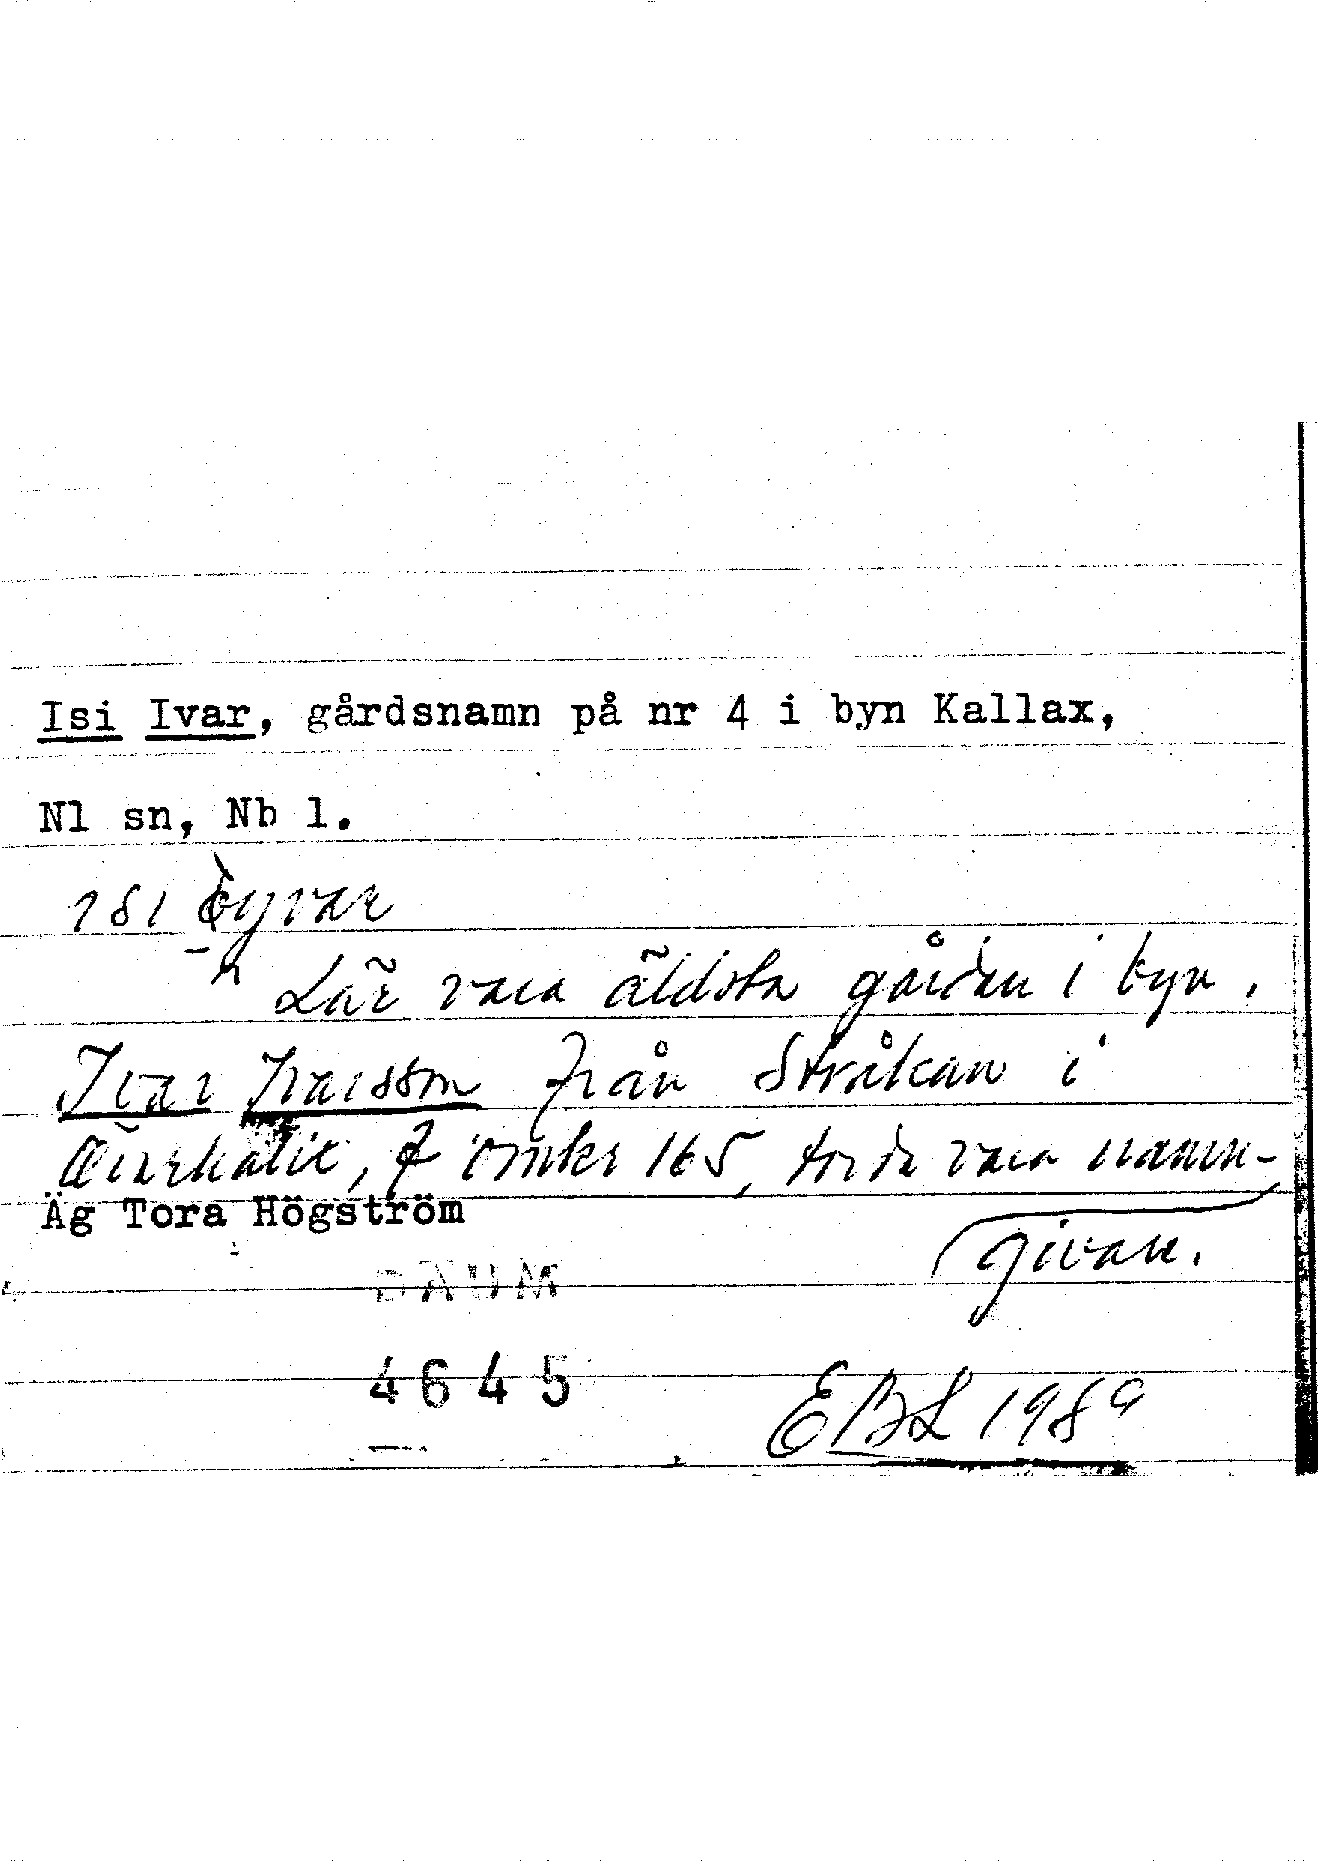 Isi Ivar, gårdsnamn på nr 4 i byn Kallax,
Nl sn, Nb l.
Lär vara äldsta gården i byn.
Ivar Ivarsson från Stråkan i
f omkr 165, torde vara namn-
givare.
Äg Tora Högström
DAUM
4645
EBL 1989